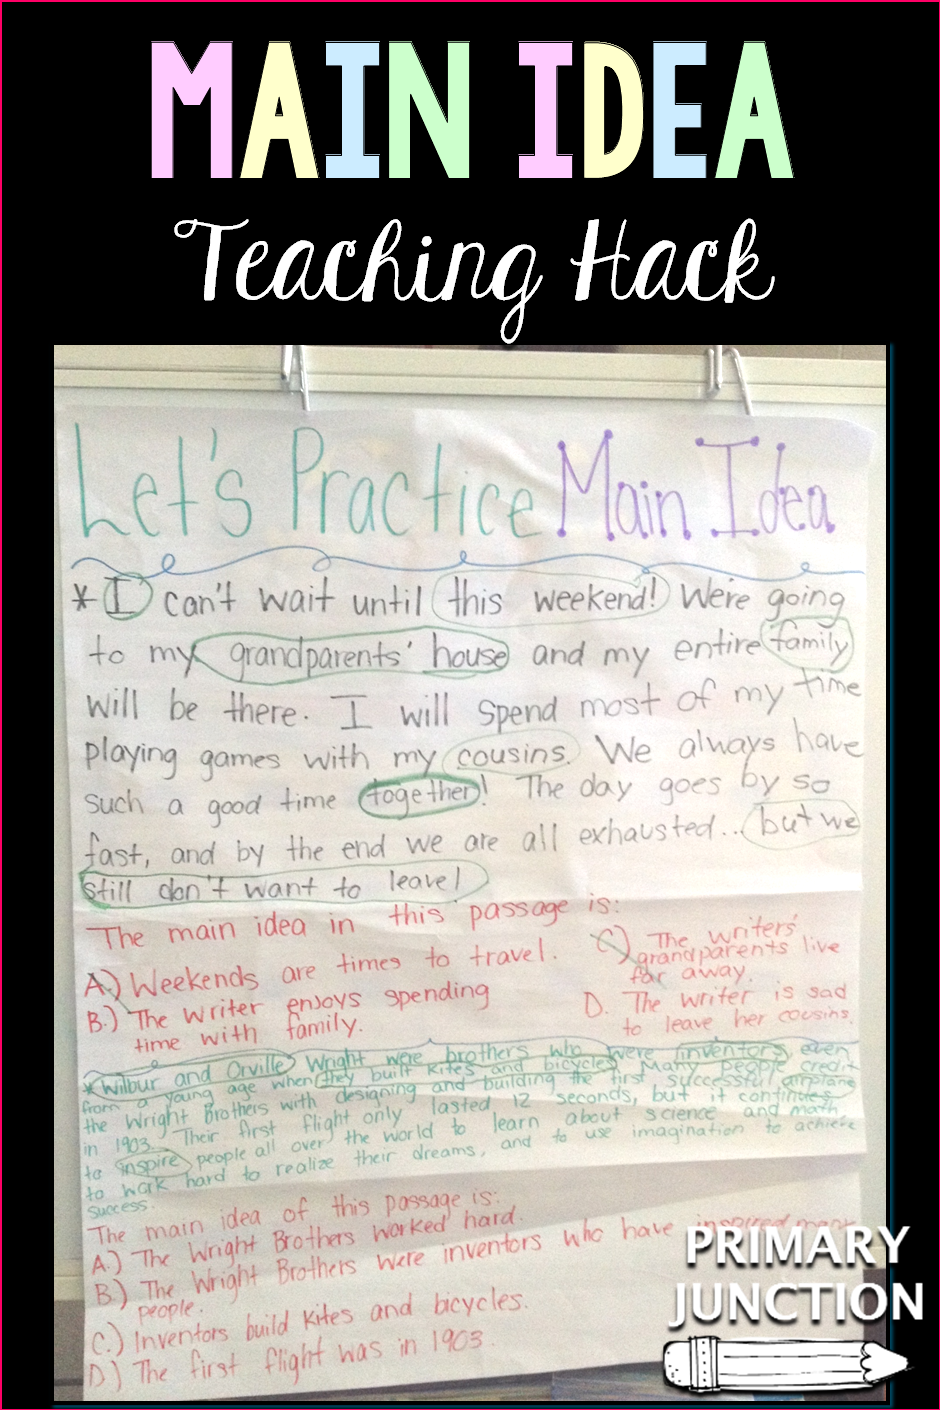 MAIN IDEA
Teaching Hack
Let's Practice Main Idea
* I can't wait until this weekend! We're going
to my grandparents' house and my entire family
will be there. I will spend most of my time
playing games with my cousins. We always have
such a good time together! The day goes by so
fast, and by the end we are all exhausted... but we
still don't want to leave!
The main idea in this passage is:
A.) Weekends are times to travel.
B.) The writer enjoys spending
time with family.
C.) The writers'
grandparents live
far away.
D. The writer is sad
to leave her cousins.
* Wilbur and Orville Wright were brothers who were inventors even
from a young age when they built kites and bicycles. Many people credit
the Wright Brothers with designing and building the first successful airplane
in 1903. Their first flight only lasted 12 seconds, but it continues
to inspire people all over the world to learn about science and math
to work hard to realize their dreams, and to use imagination to achieve
success.
The main idea of this passage is:
A.) The Wright Brothers worked hard.
B.) The Wright Brothers were inventors who have inspired many
people.
C.) Inventors build kites and bicycles.
D.) The first flight was in 1903.
PRIMARY
JUNCTION